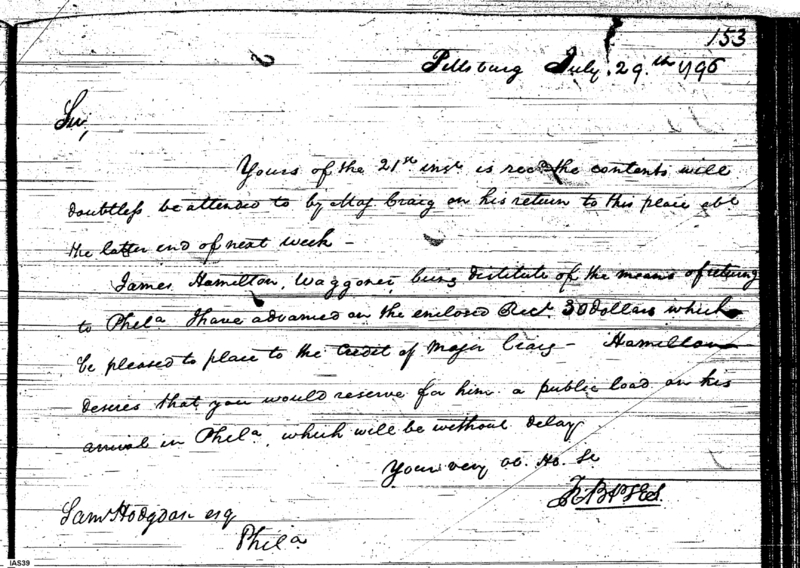 153
Pittsburg July 29.th 1796
Sir,
Yours of the 21st inst is recd the contents will
doubtless be attended to by Maj Craig on his return to this place abt
the latter end of next week –
James Hamilton, Waggoner being destitute of the means of returng
to Phila I have advanced on the enclosed Rect 30 dollars which
be pleased to place to the Credit of Major Craig – Hamilton
desires that you would reserve for him a public load on his
arrival in Phila, which will be without delay
Your very Ob. Hb. Se
Saml Hodgdon esq
Phila
IAS39